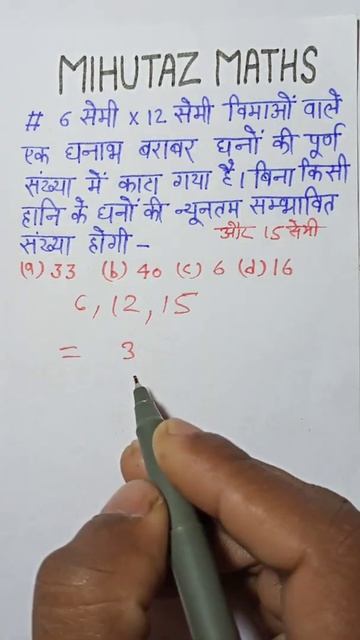 MIHUTAZ MATHS
# 6 सेमी x 12 सेमी विमाओं वाले
एक घनाभ बराबर घनों की पूर्ण
संख्या में काटा गया है। बिना किसी
हानि के घनों की न्यूनतम सम्भावित
संख्या होगी - और 15 सेमी
(a) 33 (b) 40 (c) 6 (d) 16
6, 12, 15
= 3